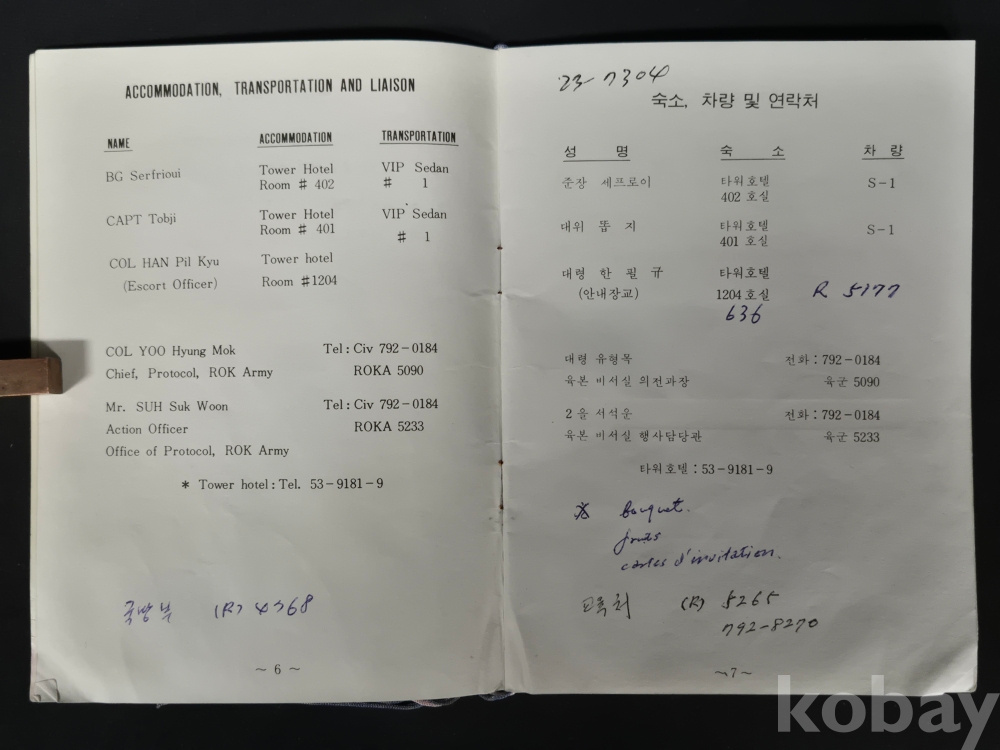 ACCOMMODATION, TRANSPORTATION AND LIAISON
NAME ACCOMMODATION TRANSPORTATION
BG Serfrioui Tower Hotel VIP Sedan
Room # 402 # 1
CAPT Tobji Tower Hotel VIP Sedan
Room # 401 # 1
COL HAN Pil Kyu Tower hotel
(Escort Officer) Room #1204
COL YOO Hyung Mok Tel : Civ 792-0184
Chief, Protocol, ROK Army ROKA 5090
Mr. SUH Suk Woon Tel : Civ 792-0184
Action Officer ROKA 5233
Office of Protocol, ROK Army
* Tower hotel : Tel. 53-9181-9
국방부 (R) 4368
~ 6 ~
23-7304
숙소, 차량 및 연락처
성 명 숙 소 차 량
준장 세프로이 타워호텔 S-1
402 호실
대위 똡 지 타워호텔 S-1
401 호실
대령 한 필 규 타워호텔
(안내장교) 1204 호실 R 5177
636
대령 유형목 전화 : 792-0184
육본 비서실 외전과장 육군 5090
2 을 서석운 전화 : 792-0184
육본 비서실 행사담당관 육군 5233
타워호텔 : 53-9181-9
※ bouquet.
cartes d'invitation.
교육처 (R) 5265
792-8270
~7~
kobay